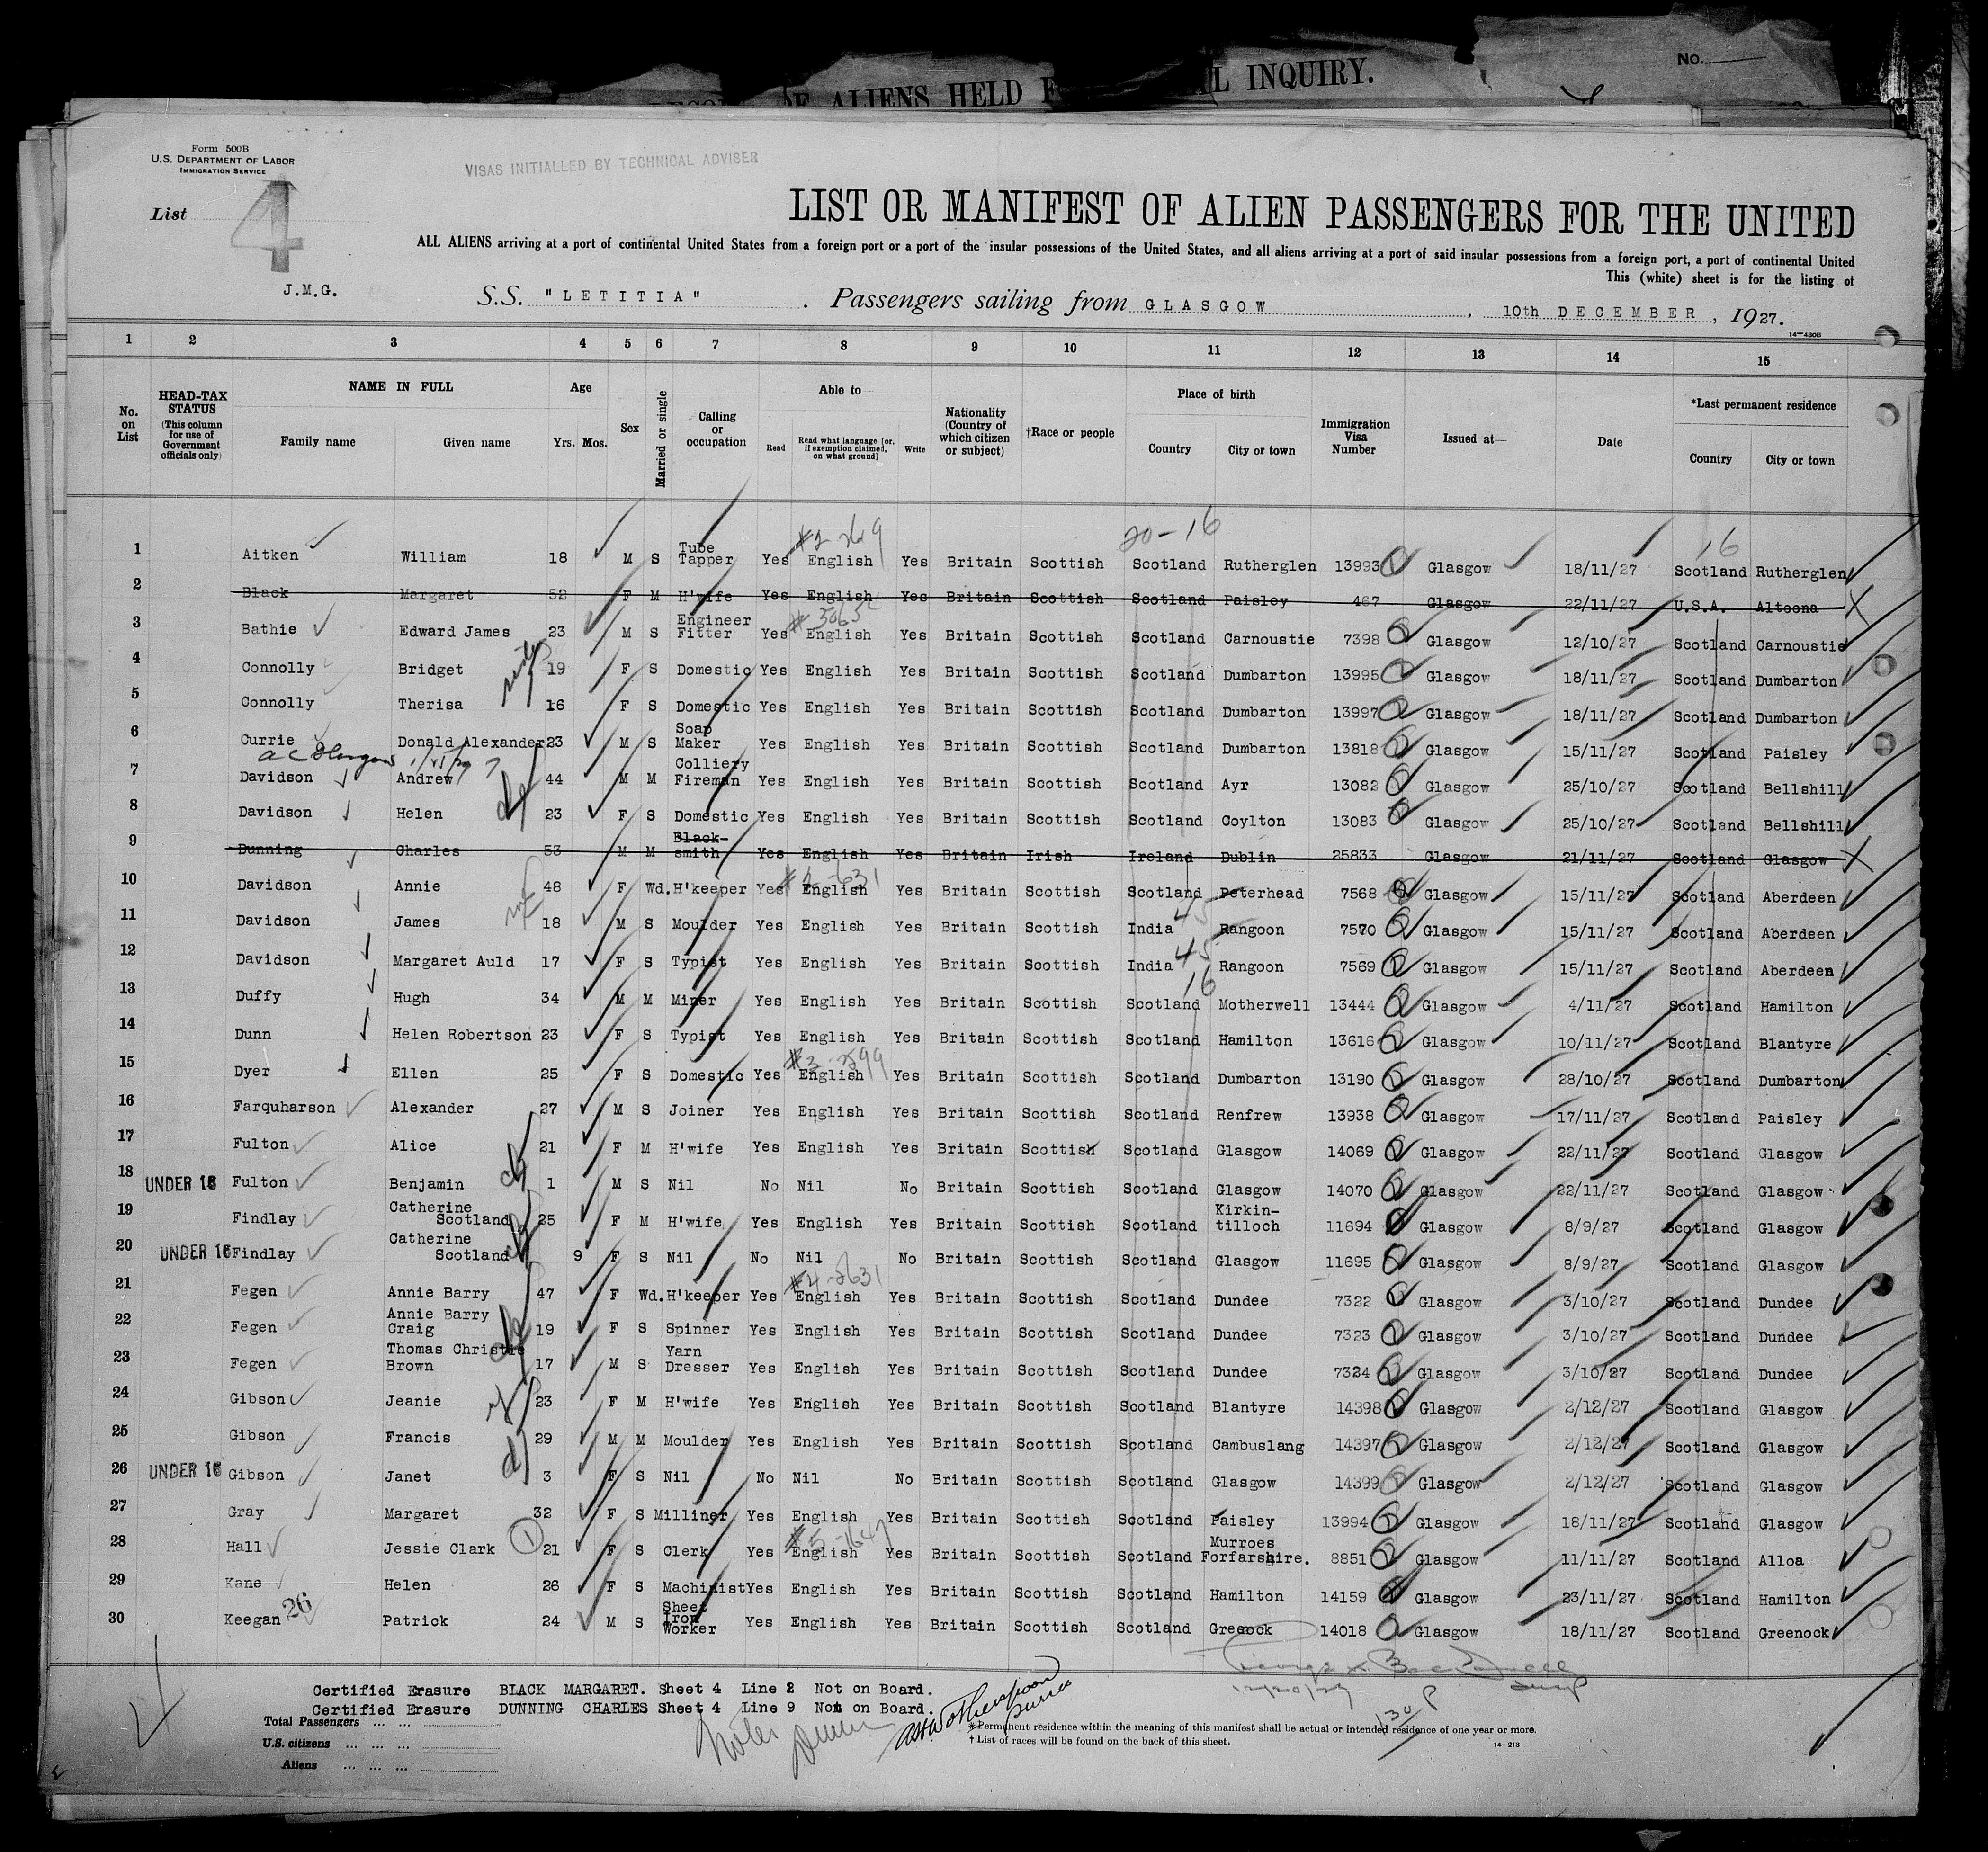 No.
OF ALIENS HELD F L INQUIRY.
Form 500B
U.S. DEPARTMENT OF LABOR
IMMIGRATION SERVICE
VISAS INITIALLED BY TECHNICAL ADVISER
List 4
LIST OR MANIFEST OF ALIEN PASSENGERS FOR THE UNITED
ALL ALIENS arriving at a port of continental United States from a foreign port or a port of the insular possessions of the United States, and all aliens arriving at a port of said insular possessions from a foreign port, a port of continental United
This (white) sheet is for the listing of
J.M.G.
S.S. "LETITIA". Passengers sailing from GLASGOW, 10th DECEMBER, 1927.
14-430B
1 2 3 4 5 6 7 8 9 10 11 12 13 14 15
No. on List
HEAD-TAX STATUS (This column for use of Government officials only)
NAME IN FULL Family name Given name
Age Yrs. Mos.
Sex
Married or single
Calling or occupation
Able to Read Read what language [or, if exemption claimed, on what ground] Write
Nationality (Country of which citizen or subject)
†Race or people
Place of birth Country City or town
Immigration Visa Number
Issued at—
Date
*Last permanent residence Country City or town
#2-269 20-16 16
1 Aitken William 18 M S Tube Tapper Yes English Yes Britain Scottish Scotland Rutherglen 13993 Glasgow 18/11/27 Scotland Rutherglen
2 Black Margaret 52 F M H'wife Yes English Yes Britain Scottish Scotland Paisley 467 Glasgow 22/11/27 U.S.A. Altoona X
3 Bathie Edward James 23 M S Engineer Fitter Yes English Yes Britain Scottish Scotland Carnoustie 7398 Glasgow 12/10/27 Scotland Carnoustie
4 Connolly Bridget 19 F S Domestic Yes English Yes Britain Scottish Scotland Dumbarton 13995 Glasgow 18/11/27 Scotland Dumbarton
5 Connolly Therisa 16 F S Domestic Yes English Yes Britain Scottish Scotland Dumbarton 13997 Glasgow 18/11/27 Scotland Dumbarton
6 Currie Donald Alexander 23 M S Soap Maker Yes English Yes Britain Scottish Scotland Dumbarton 13818 Glasgow 15/11/27 Scotland Paisley
7 Davidson Andrew 44 M M Colliery Fireman Yes English Yes Britain Scottish Scotland Ayr 13082 Glasgow 25/10/27 Scotland Bellshill
8 Davidson Helen 23 F S Domestic Yes English Yes Britain Scottish Scotland Coylton 13083 Glasgow 25/10/27 Scotland Bellshill
9 Dunning Charles 53 M M Black-smith Yes English Yes Britain Irish Ireland Dublin 25833 Glasgow 21/11/27 Scotland Glasgow X
10 Davidson Annie 48 F Wd. H'keeper Yes English Yes Britain Scottish Scotland Peterhead 7568 Glasgow 15/11/27 Scotland Aberdeen
11 Davidson James 18 M S Moulder Yes English Yes Britain Scottish India 45 Rangoon 7570 Glasgow 15/11/27 Scotland Aberdeen
12 Davidson Margaret Auld 17 F S Typist Yes English Yes Britain Scottish India 45 Rangoon 7569 Glasgow 15/11/27 Scotland Aberdeen
13 Duffy Hugh 34 M M Miner Yes English Yes Britain Scottish Scotland 16 Motherwell 13444 Glasgow 4/11/27 Scotland Hamilton
14 Dunn Helen Robertson 23 F S Typist Yes English Yes Britain Scottish Scotland Hamilton 13616 Glasgow 10/11/27 Scotland Blantyre
15 Dyer Ellen 25 F S Domestic Yes English Yes Britain Scottish Scotland Dumbarton 13190 Glasgow 28/10/27 Scotland Dumbarton
16 Farquharson Alexander 27 M S Joiner Yes English Yes Britain Scottish Scotland Renfrew 13938 Glasgow 17/11/27 Scotland Paisley
17 Fulton Alice 21 F M H'wife Yes English Yes Britain Scottish Scotland Glasgow 14069 Glasgow 22/11/27 Scotland Glasgow
18 UNDER 16 Fulton Benjamin 1 M S Nil No Nil No Britain Scottish Scotland Glasgow 14070 Glasgow 22/11/27 Scotland Glasgow
19 Findlay Catherine Scotland 25 F M H'wife Yes English Yes Britain Scottish Scotland Kirkin-tilloch 11694 Glasgow 8/9/27 Scotland Glasgow
20 UNDER 16 Findlay Catherine Scotland 9 F S Nil No Nil No Britain Scottish Scotland Glasgow 11695 Glasgow 8/9/27 Scotland Glasgow
21 Fegen Annie Barry 47 F Wd. H'keeper Yes English Yes Britain Scottish Scotland Dundee 7322 Glasgow 3/10/27 Scotland Dundee
22 Fegen Annie Barry Craig 19 F S Spinner Yes English Yes Britain Scottish Scotland Dundee 7323 Glasgow 3/10/27 Scotland Dundee
23 Fegen Thomas Christie Brown 17 M S Yarn Dresser Yes English Yes Britain Scottish Scotland Dundee 7324 Glasgow 3/10/27 Scotland Dundee
24 Gibson Jeanie 23 F M H'wife Yes English Yes Britain Scottish Scotland Blantyre 14398 Glasgow 2/12/27 Scotland Glasgow
25 Gibson Francis 29 M M Moulder Yes English Yes Britain Scottish Scotland Cambuslang 14397 Glasgow 2/12/27 Scotland Glasgow
26 UNDER 16 Gibson Janet 3 F S Nil No Nil No Britain Scottish Scotland Glasgow 14399 Glasgow 2/12/27 Scotland Glasgow
27 Gray Margaret 32 F S Milliner Yes English Yes Britain Scottish Scotland Paisley 13994 Glasgow 18/11/27 Scotland Glasgow
28 Hall Jessie Clark 1 21 F S Clerk Yes English Yes Britain Scottish Scotland Murroes Forfarshire. 8851 Glasgow 11/11/27 Scotland Alloa
29 Kane Helen 26 F S Machinist Yes English Yes Britain Scottish Scotland Hamilton 14159 Glasgow 23/11/27 Scotland Hamilton
30 Keegan 26 Patrick 24 M S Sheet Iron Worker Yes English Yes Britain Scottish Scotland Greeock 14018 Glasgow 18/11/27 Scotland Greenock
Certified Erasure BLACK MARGARET. Sheet 4 Line 2 Not on Board.
Certified Erasure DUNNING CHARLES Sheet 4 Line 9 Not on Board.
Total Passengers ... ...
U.S. citizens ... ... ...
Aliens ... ... ...
* Permanent residence within the meaning of this manifest shall be actual or intended residence of one year or more.
† List of races will be found on the back of this sheet.
14-213